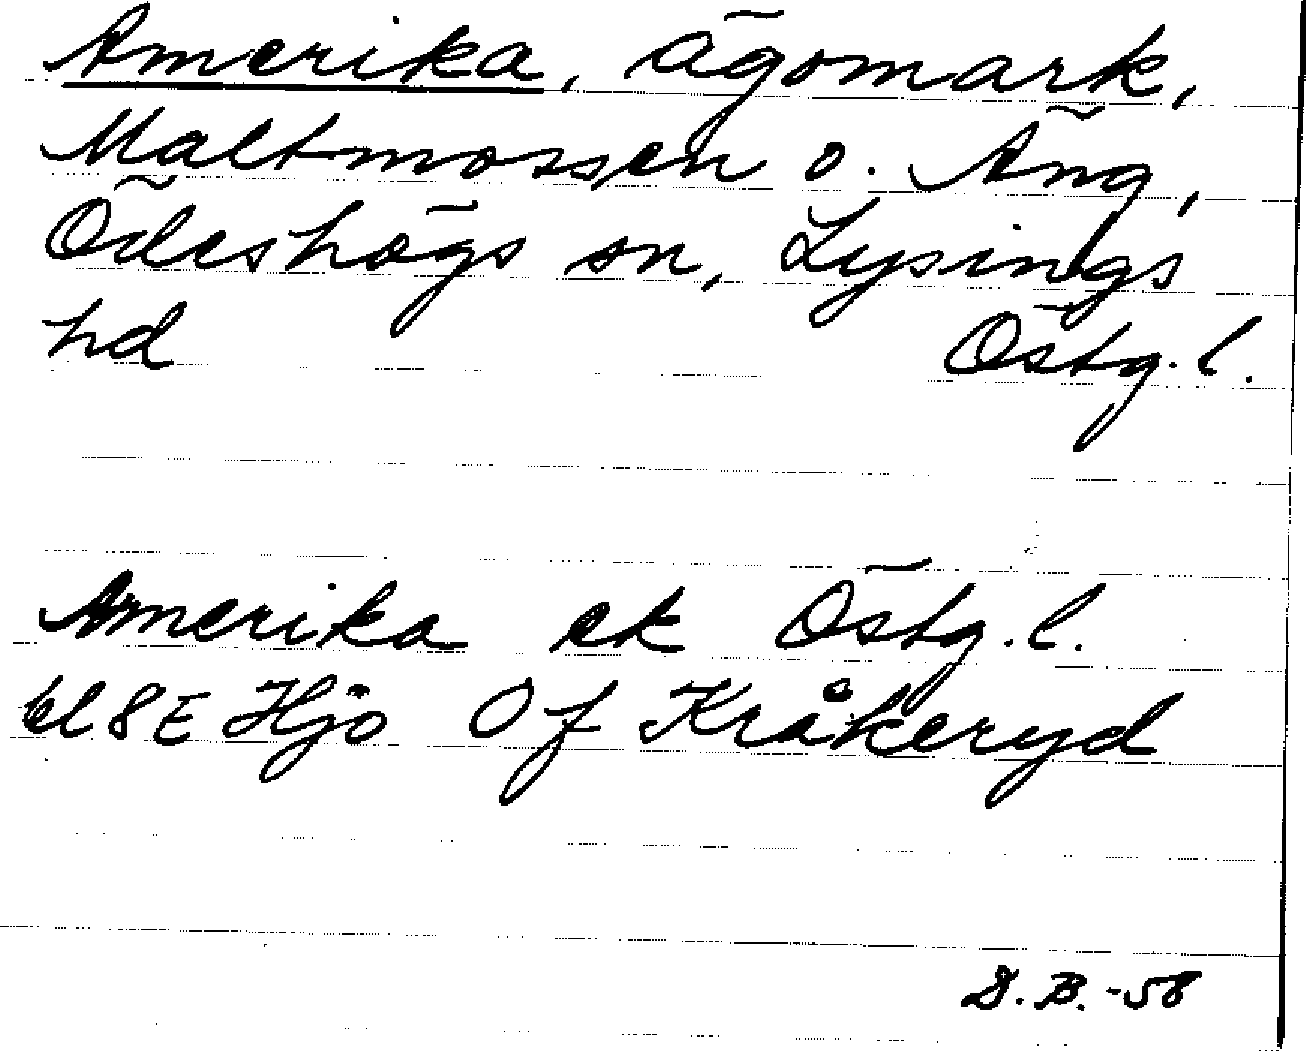 Amerika, ägomark,
Maltmossen o. Äng,
Ödeshögs sn, Lysings
hd Östg. l.
Amerika ek Östg. l.
bl 8E Hjo Of Kråkeryd
D. B. -58